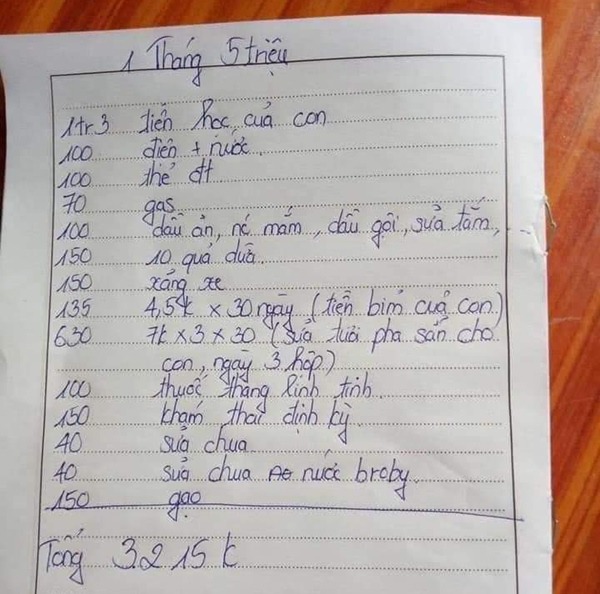 1 Tháng 5 triệu
1tr3 tiền học của con
100 điện + nước
100 thẻ đt
70 gas
100 dầu ăn, nc mắm, dầu gội, sữa tắm, ...
150 10 quả dừa
150 xăng xe
135 4,5k x 30 ngày (tiền bỉm của con)
630 7k x 3 x 30 (sữa tươi pha sẵn cho
con, ngày 3 hộp)
100 thuốc thang linh tinh
150 khám thai định kỳ
40 sữa chua
40 sữa chua nước broby
150 gạo
Tổng 3.215k